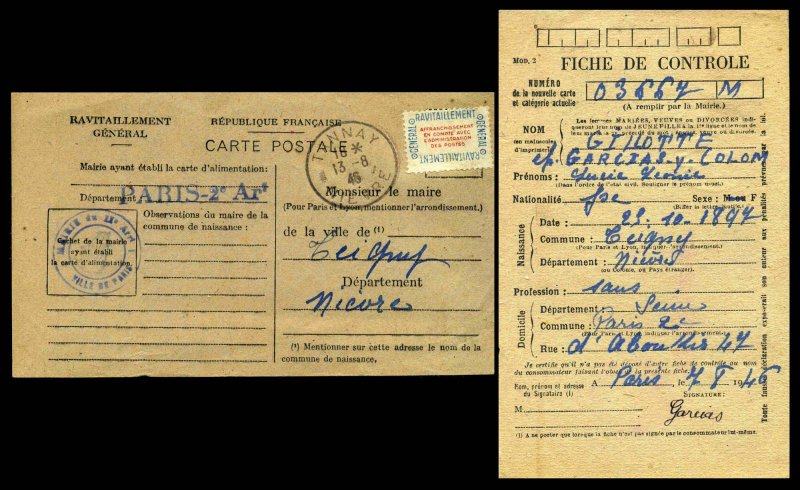 RAVITAILLEMENT
GÉNÉRAL
RÉPUBLIQUE FRANÇAISE
CARTE POSTALE
TANNAY
18 *
13 -8
46
RAVITAILLEMENT
GÉNÉRAL
AFFRANCHISSEMENT
EN COMPTE AVEC
L'ADMINISTRATION
DES POSTES
GÉNÉRAL
RAVITAILLEMENT
Mairie ayant établi la carte d'alimentation:
Département
PARIS-2e Art
Observations du maire de la
commune de naissance:
MAIRIE du IIe Arrt
VILLE DE PARIS
Cachet de la mairie
ayant établi
la carte d'alimentation
Monsieur le maire
(Pour Paris et Lyon, mentionner l'arrondissement.)
de la ville de (1)
Teigny
Département
Nièvre
(1) Mentionner sur cette adresse le nom de la
commune de naissance.
MOD. 2
FICHE DE CONTROLE
NUMÉRO
de la nouvelle carte
et catégorie actuelle
03667 M
(A remplir par la Mairie.)
NOM
en majuscules
d'imprimerie
Les femmes MARIÉES, VEUVES ou DIVORCÉES
GILOTTE
ép. GARCIAS y COLOM
Prénoms:
(Dans l'ordre de l'état civil. Souligner le prénom usuel.)
Nationalité fse Sexe: M ou F
(Biffer la lettre inutile.)
Naissance
Date: 22.10.1897
Commune: Teigny
(Pour Paris et Lyon, indiquer l'arrondissement.)
Département: Nièvre
(ou Colonie, ou Pays étranger).
Profession: sans
Domicile
Département: Seine
Commune: Paris 2e
(Pour Paris et Lyon indiquer l'arrondissement.)
Rue: d'Aboukir 47
Je certifie qu'il n'a pas été déposé d'autre fiche de contrôle au nom
du consommateur faisant l'objet de la présente fiche.
Nom, prénom et adresse
du Signataire (1)
A Paris, le 7 8 1946
SIGNATURE:
M
Garcias
(1) A ne porter que lorsque la fiche n'est pas signée par le consommateur lui-même.